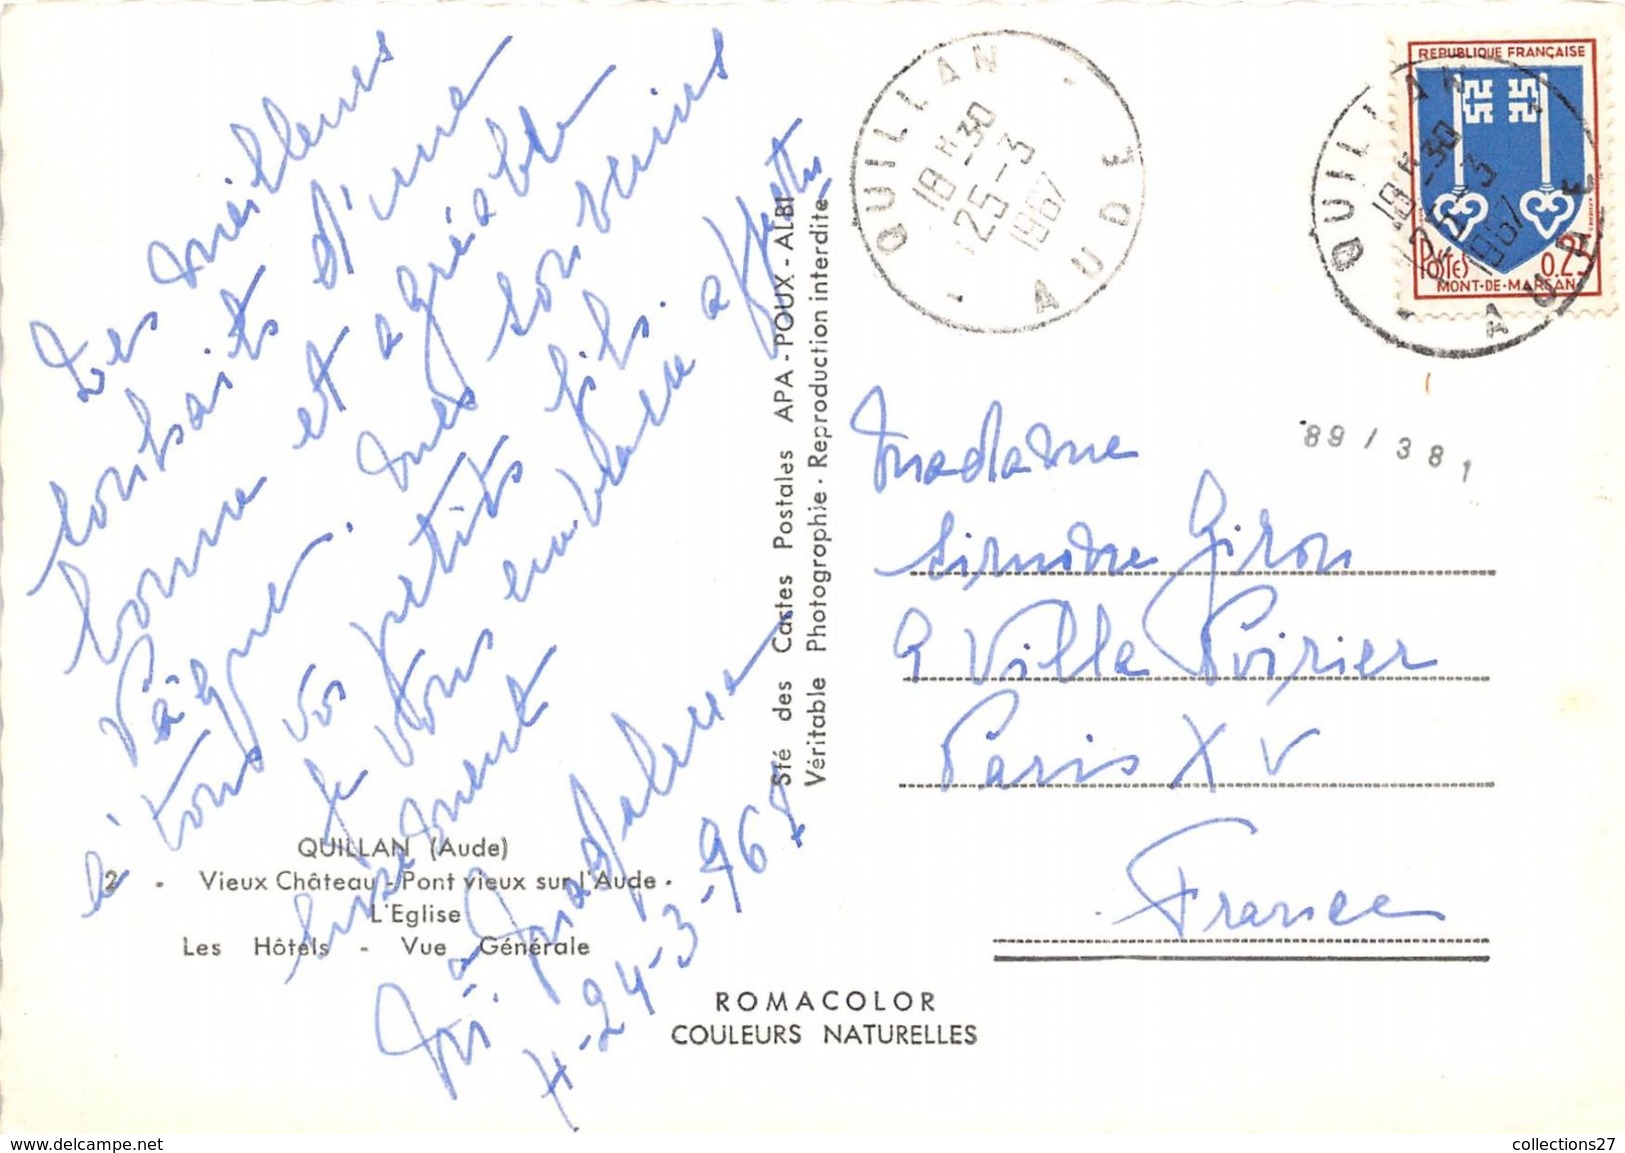 Les meilleurs
souhaits d'une
bonne et agréable
Pâques. Mes souvenirs
à tous vos petits fils.
je vous embrasse affectu
eusement
Magdalena
H-24-3-967
QUILLAN (Aude)
2 - Vieux Château - Pont vieux sur l'Aude -
L'Eglise
Les Hôtels - Vue Générale
Sté des Cartes Postales APA - POUX - ALBI
Véritable Photographie - Reproduction interdite
ROMACOLOR
COULEURS NATURELLES
QUILLAN - AUDE
18H-30
25-3
1967
QUILLAN - AUDE
18H-30
25-3
1967
REPUBLIQUE FRANÇAISE
POSTES 0,25
MONT-DE-MARSAN
89/381
Madame
Simone Giron
9 Villa Poirier
Paris XV
France
collections27